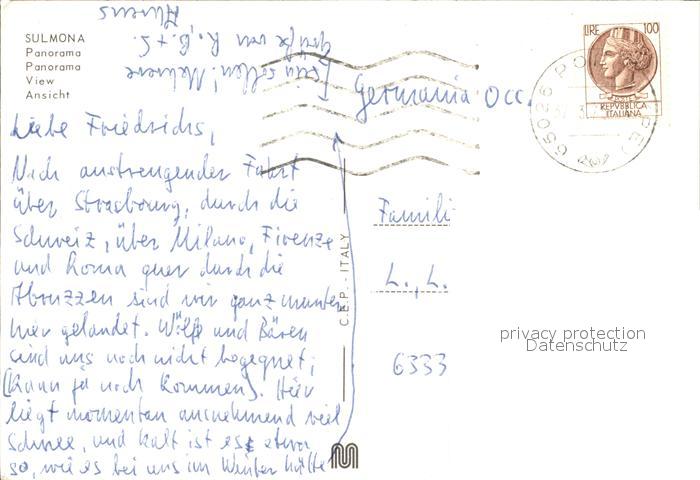 SULMONA
Panorama
Panorama
View
Ansicht
Liebe Friedrichs,
Nach anstrengender Fahrt
über Strasbourg, durch die
Schweiz, über Milano, Firenze
und Roma quer durch die
Abruzzen sind wir ganz munter
hier gelandet. Wölfe und Bären
sind uns noch nicht begegnet;
(Kann ja noch kommen). Hier
liegt momentan ausnehmend viel
Schnee, und kalt ist es etwa
so, wie es bei uns im Winter hätte
sein sollen! Mehrere
Grüße von K., B. + S.
Ahrens
C.E.P. - ITALY
LIRE 100
REPVBBLICA
ITALIANA
65026 PO
Germania Occ.
Famili
L., L.
6333
privacy protection
Datenschutz